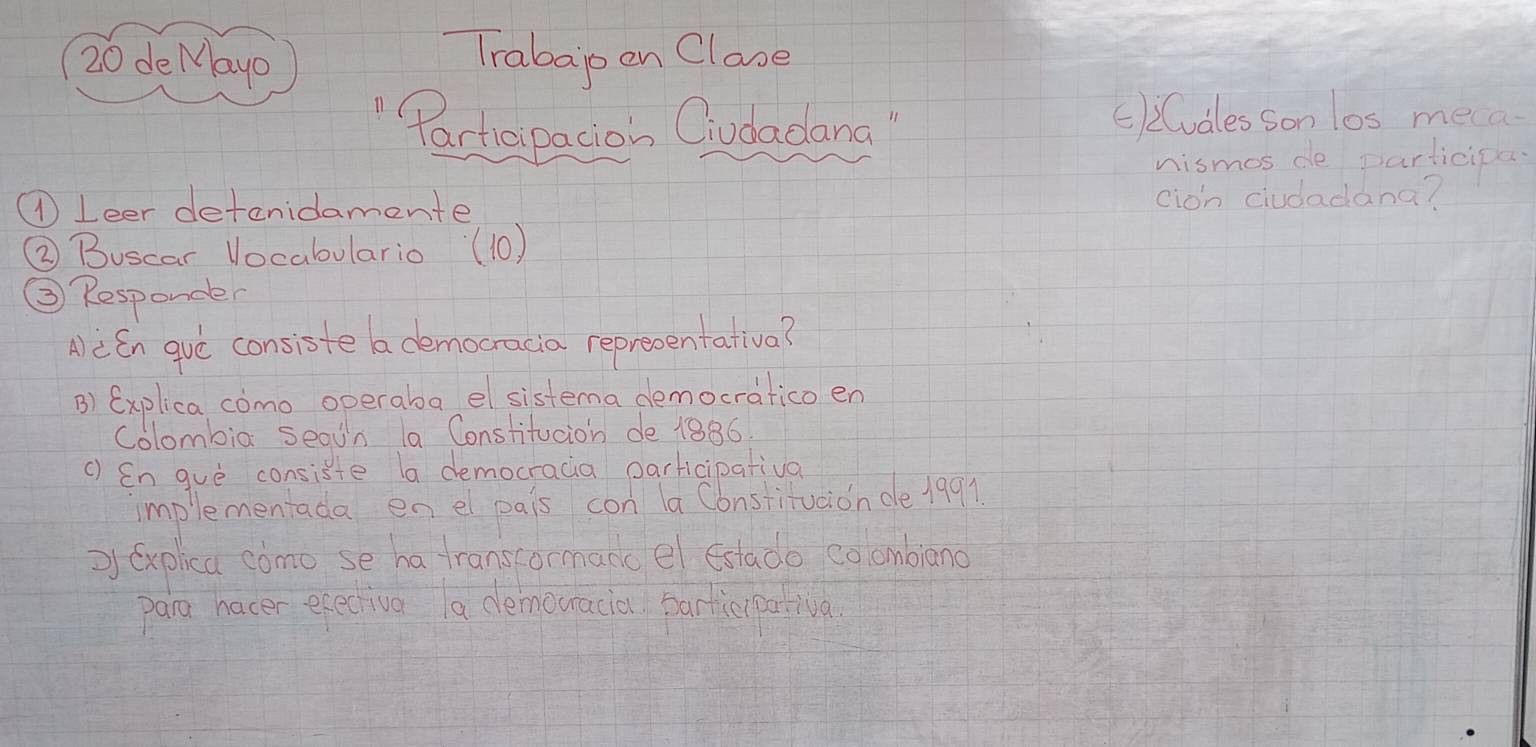 20 de Mayo
Trabajo en Clase
"Participación Ciudadana"
① Leer detenidamente
② Buscar Vocabulario (10)
③ Responder
A) ¿En qué consiste la democracia representativa?
B) Explica cómo operaba el sistema democrático en
Colombia según la Constitución de 1886.
C) En qué consiste la democracia participativa
implementada en el país con la Constitución de 1991.
D) Explica cómo se ha transformado el Estado colombiano
para hacer efectiva la democracia participativa.
E) ¿Cuáles son los meca-
nismos de participa-
ción ciudadana?